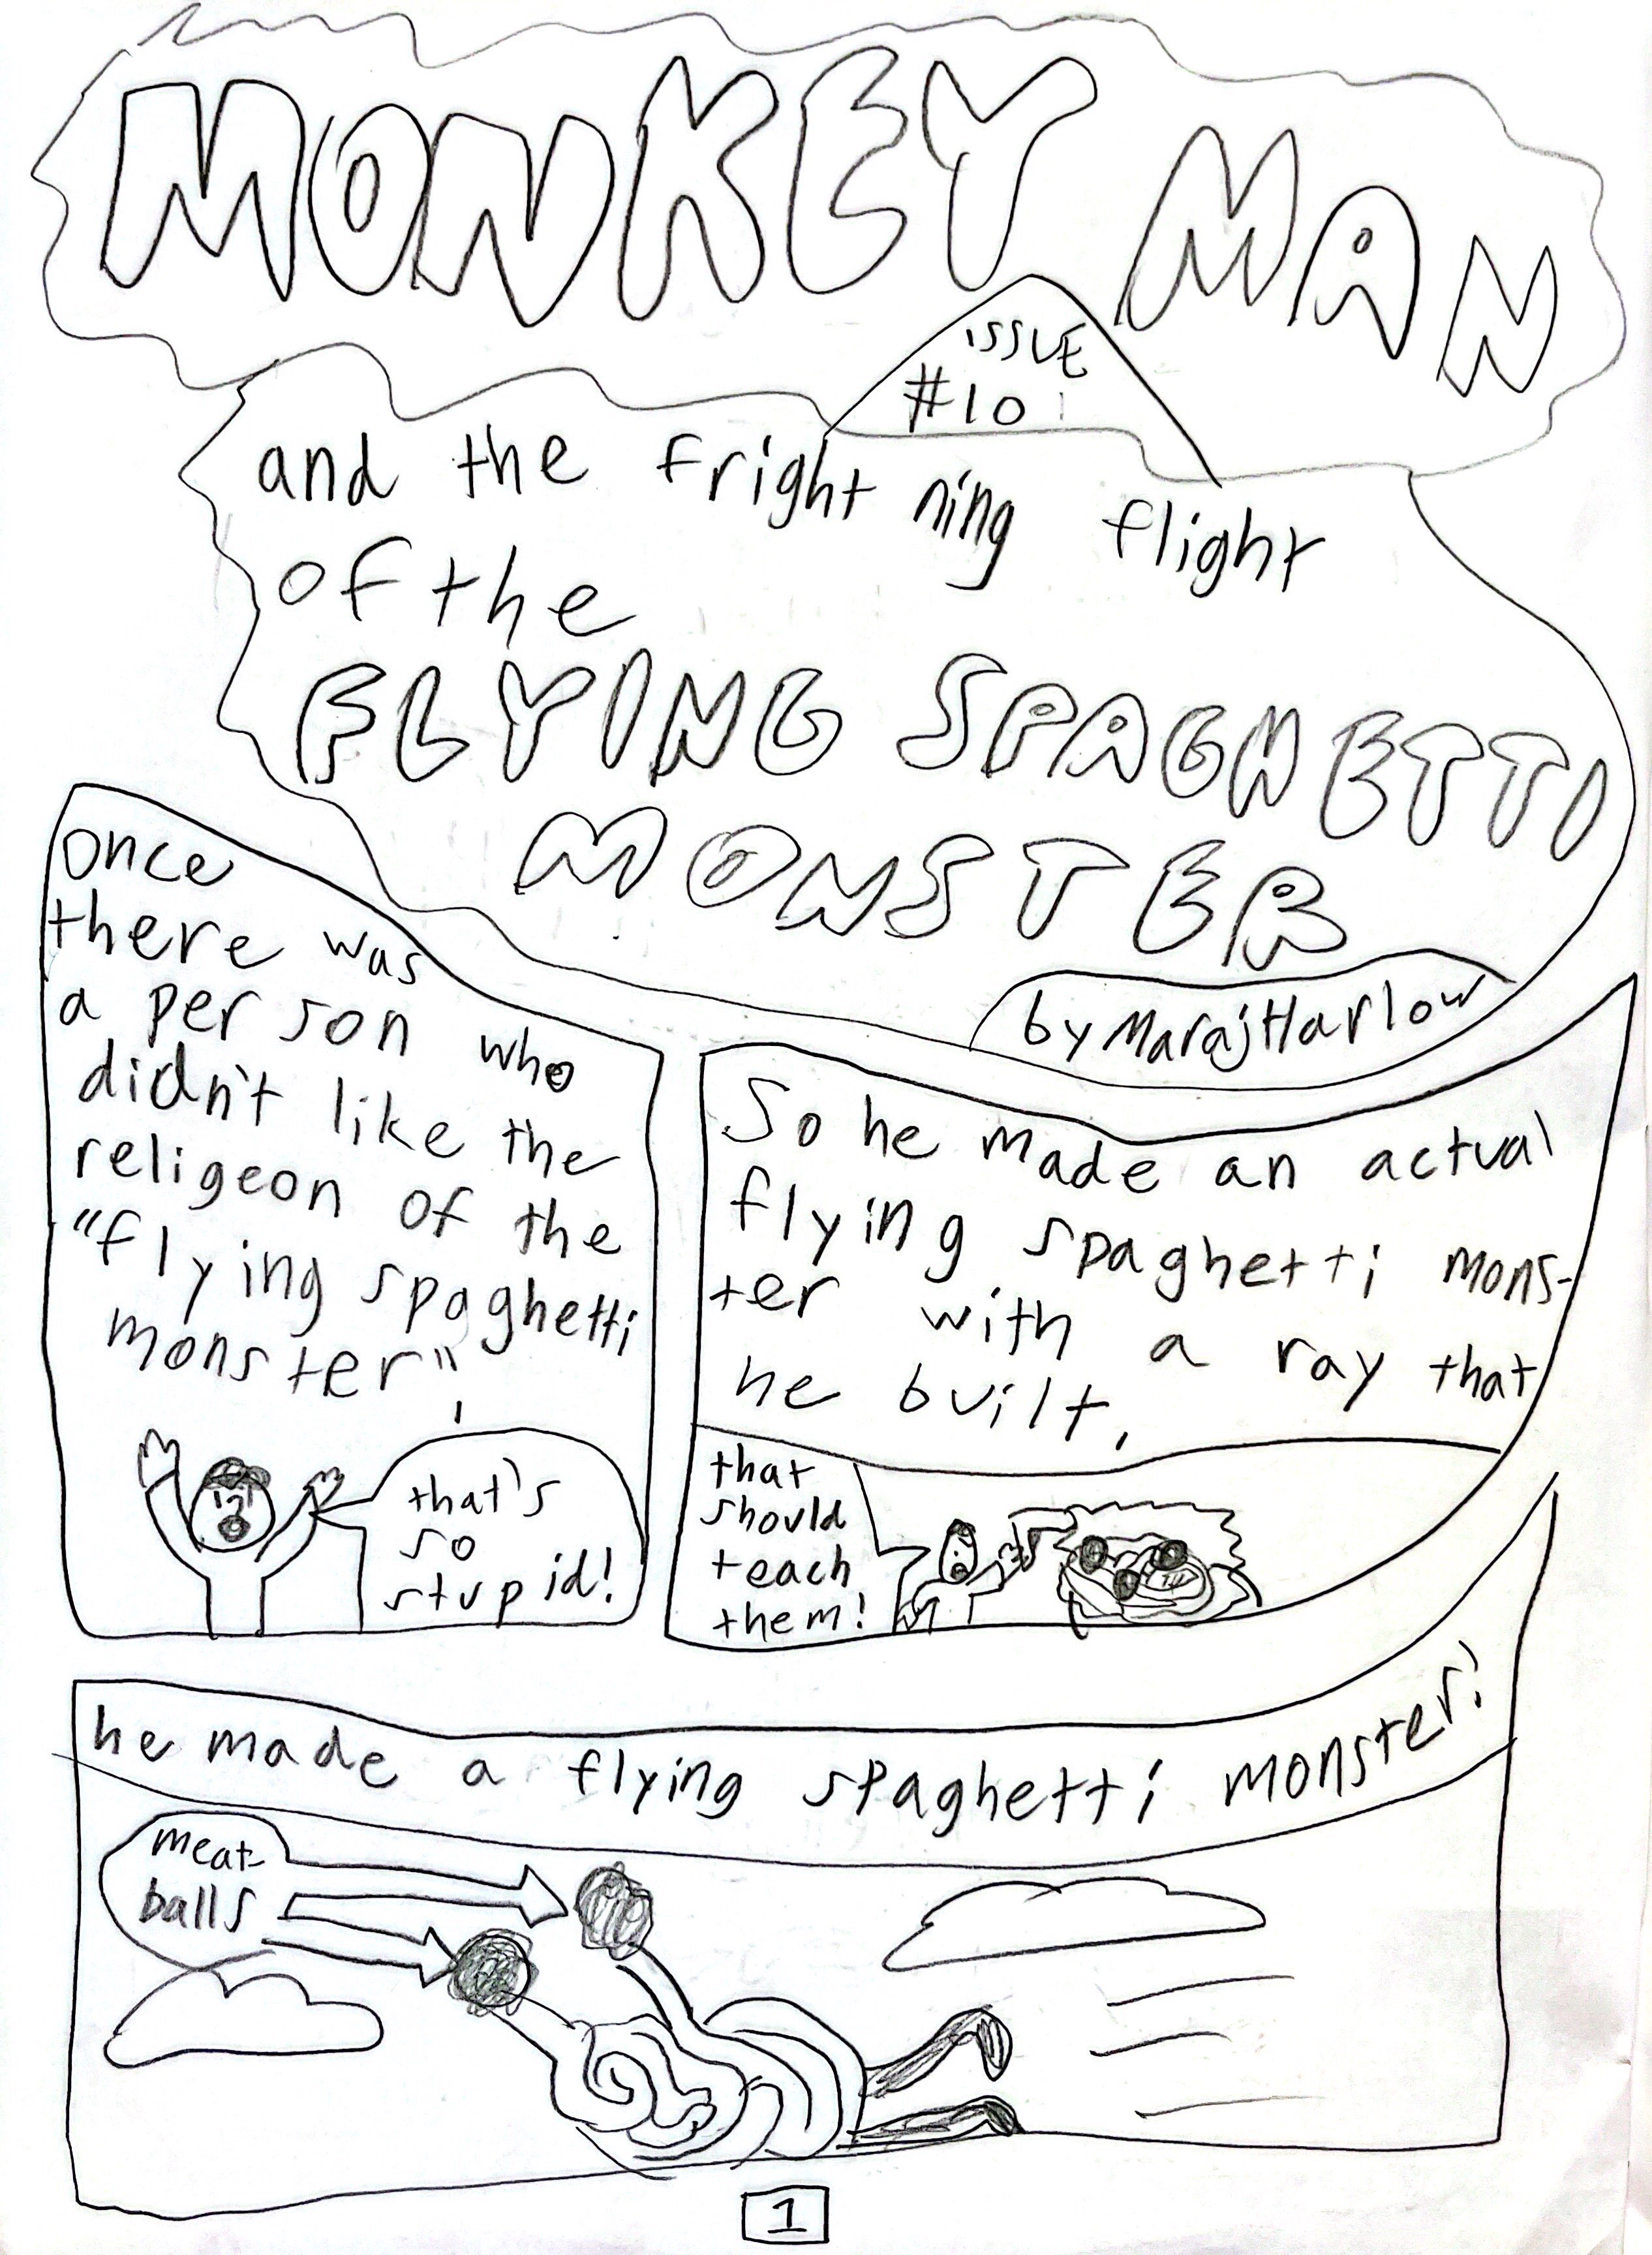 MONKEY MAN
ISSUE
#10
and the frightning flight
of the
FLYING SPAGHETTI
MONSTER
by Maraj Harlow
once
there was
a person who
didn't like the
religeon of the
"flying spaghetti
monster",
that's
so
stupid!
So he made an actual
flying spaghetti mons-
ter with a ray that
he built,
that
should
teach
them!
he made a flying spaghetti monster!
meat-
balls
1